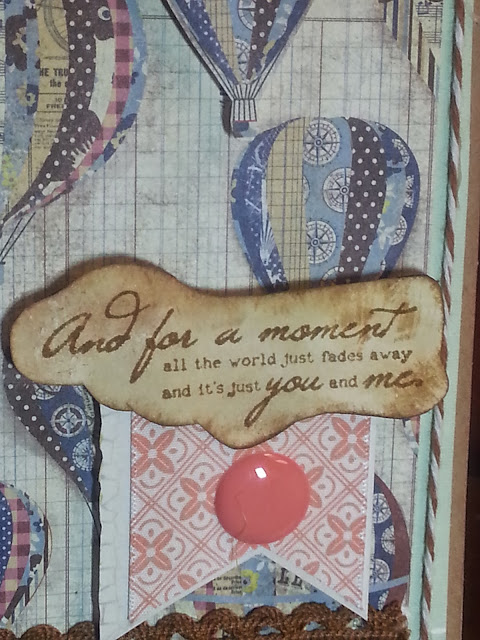 THE TRU
And for a moment
all the world just fades away
and it's just you and me.